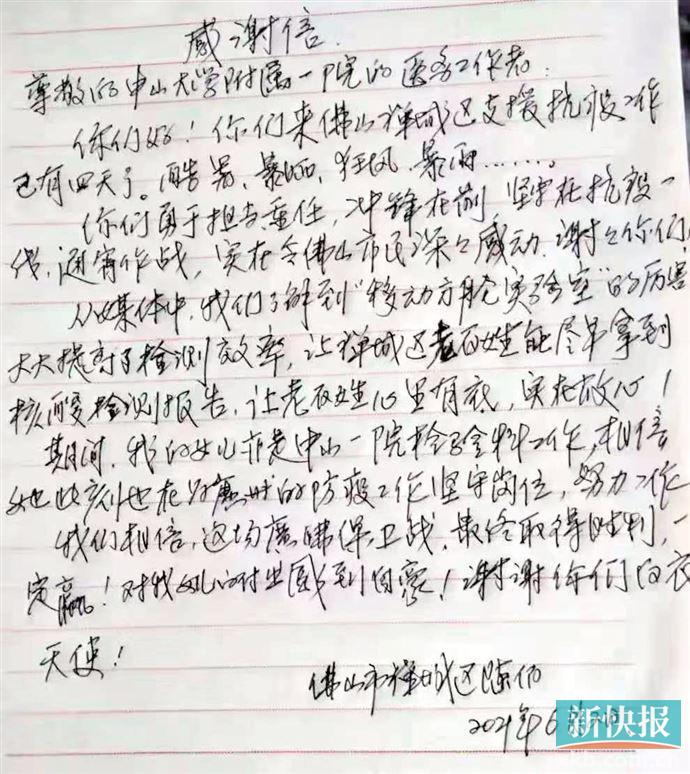 感谢信.
尊敬的中山大学附属一院的医务工作者:
你们好!你们来佛山禅城区支援抗疫工作
已有四天了。酷暑、暴晒、狂风、暴雨……。
你们勇于担当重任,冲锋在前 坚守在抗疫一
线,通宵作战,实在令佛山市民深々感动.谢々你们,
从媒体中,我们了解到“移动方舱实验室”的厉害
大大提高了检测效率,让禅城区老百姓能尽早拿到
核酸检测报告,让老百姓心里有底,实在放心!
期间,我的女儿亦是中山一院检验科工作,相信
她此刻也在为广州的防疫工作坚守岗位,努力工作
我们相信,这场广佛保卫战,最终取得胜利,一
定赢!对我女儿的付出感到自豪!谢谢你们白衣
天使!
佛山市禅城区陈伯
2021年6
新快报